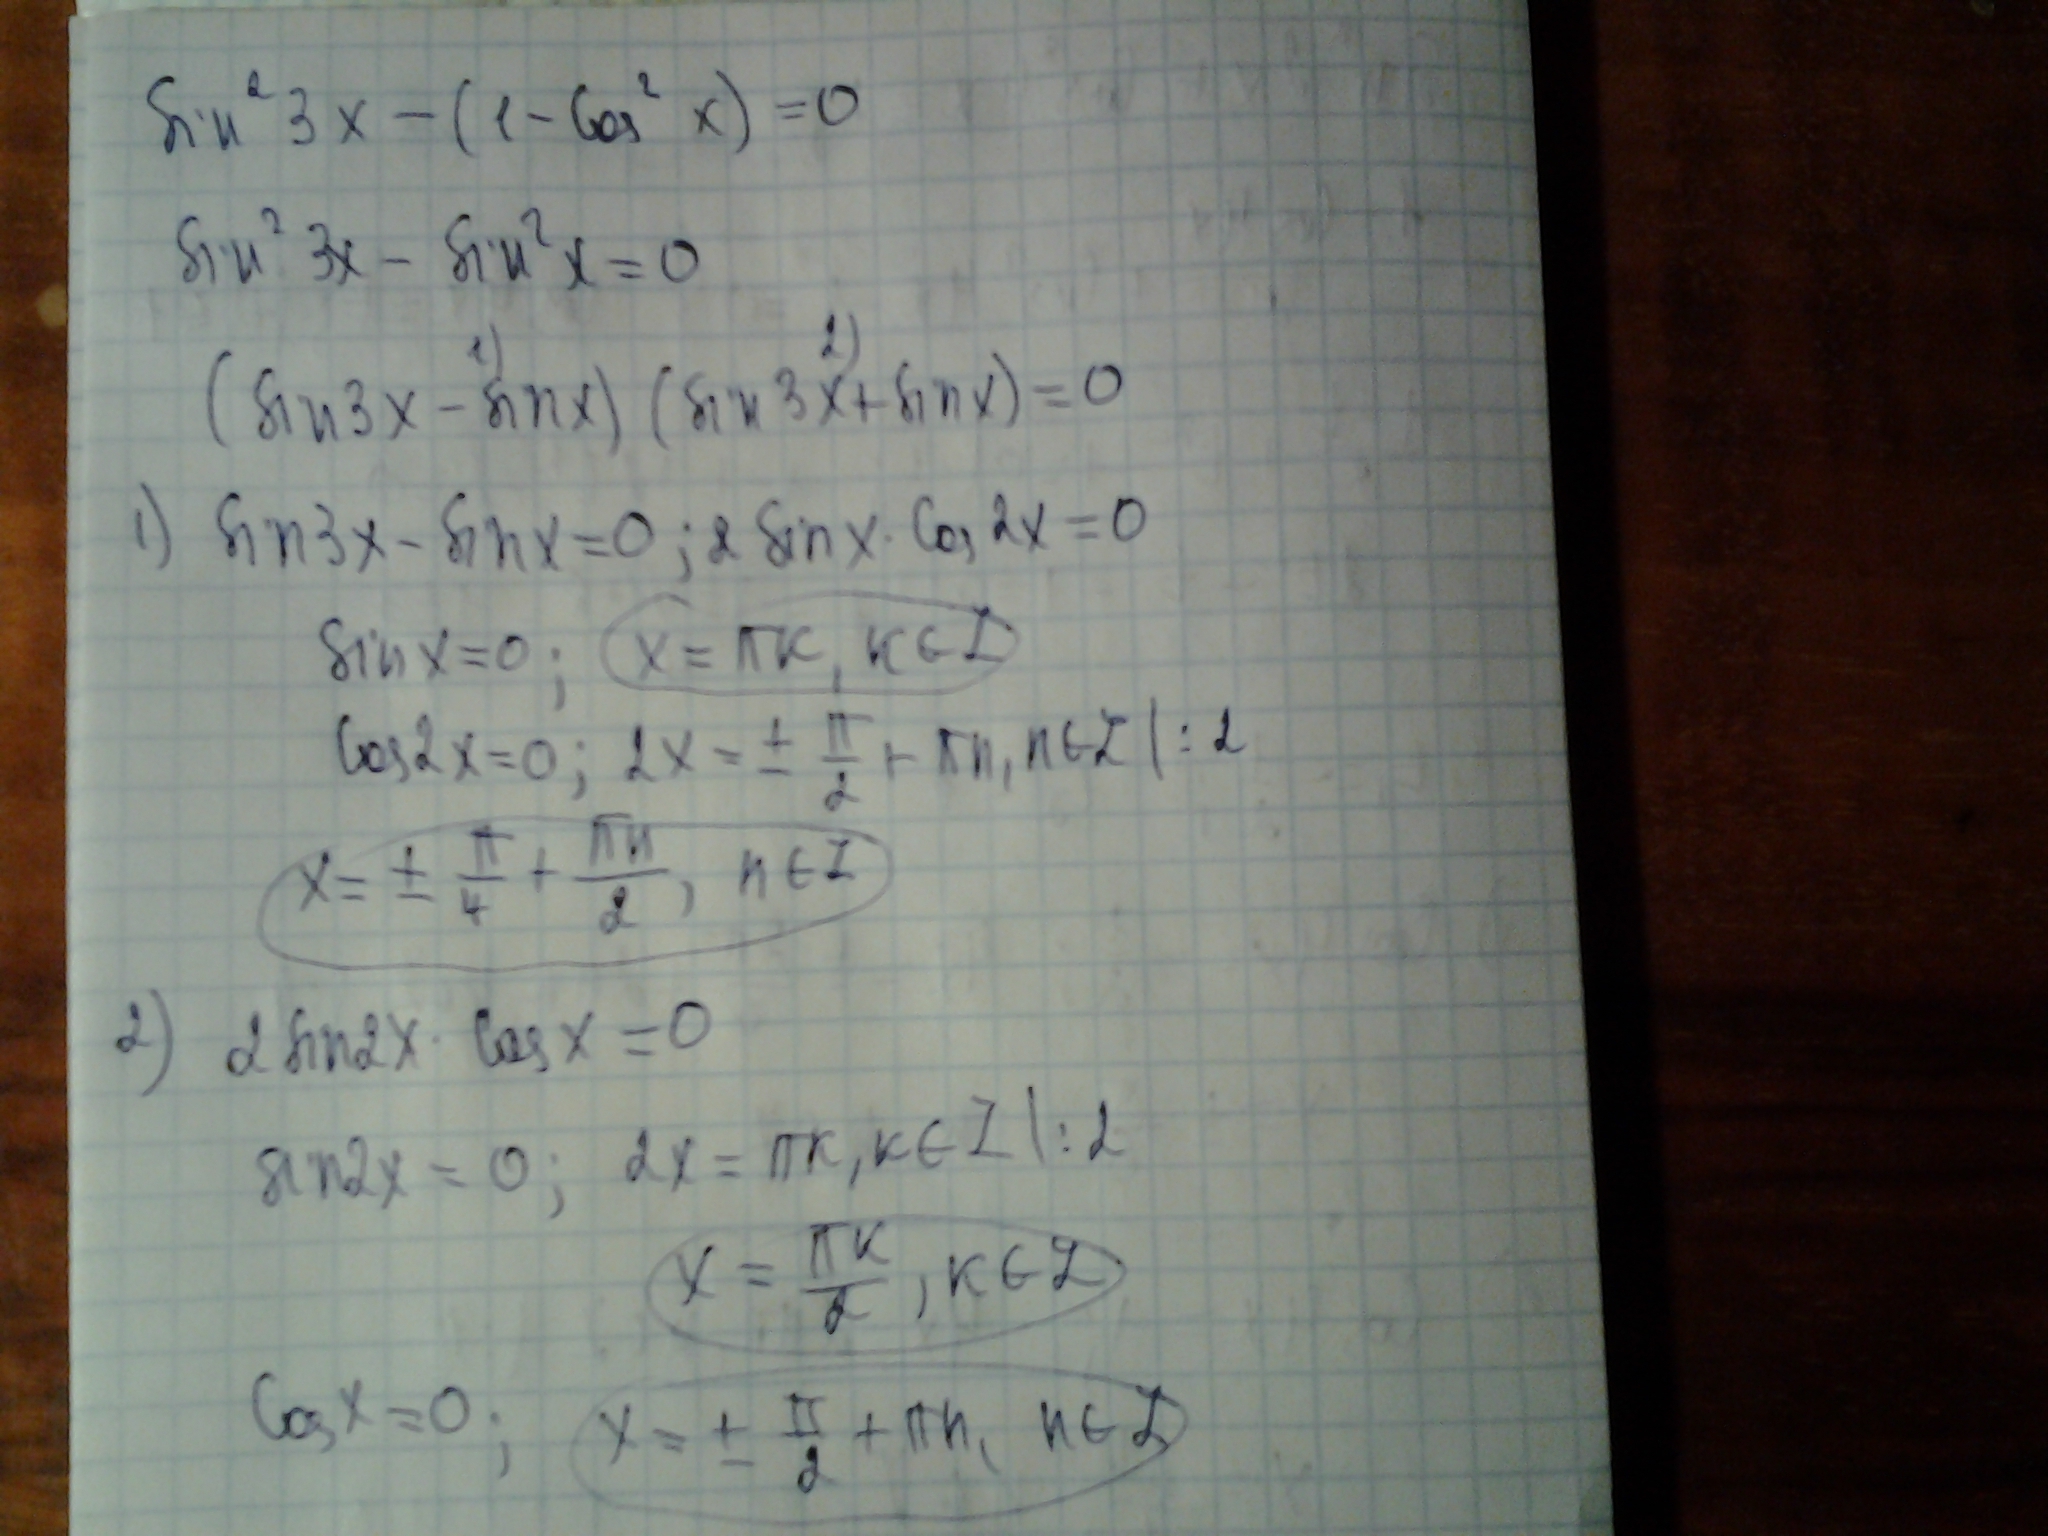 sin² 3x − (1 − cos² x) = 0
sin² 3x − sin² x = 0
1) 2)
(sin 3x − sin x) (sin 3x + sin x) = 0
1) sin 3x − sin x = 0 ; 2 sin x · cos 2x = 0
sin x = 0 ; x = πк, к ∈ Z
cos 2x = 0 ; 2x = ± π/2 + πn, n ∈ Z | : 2
x = ± π/4 + πn/2, n ∈ Z
2) 2 sin 2x · cos x = 0
sin 2x = 0 ; 2x = πк, к ∈ Z | : 2
x = πк/2, к ∈ Z
cos x = 0 ; x = ± π/2 + πn, n ∈ Z